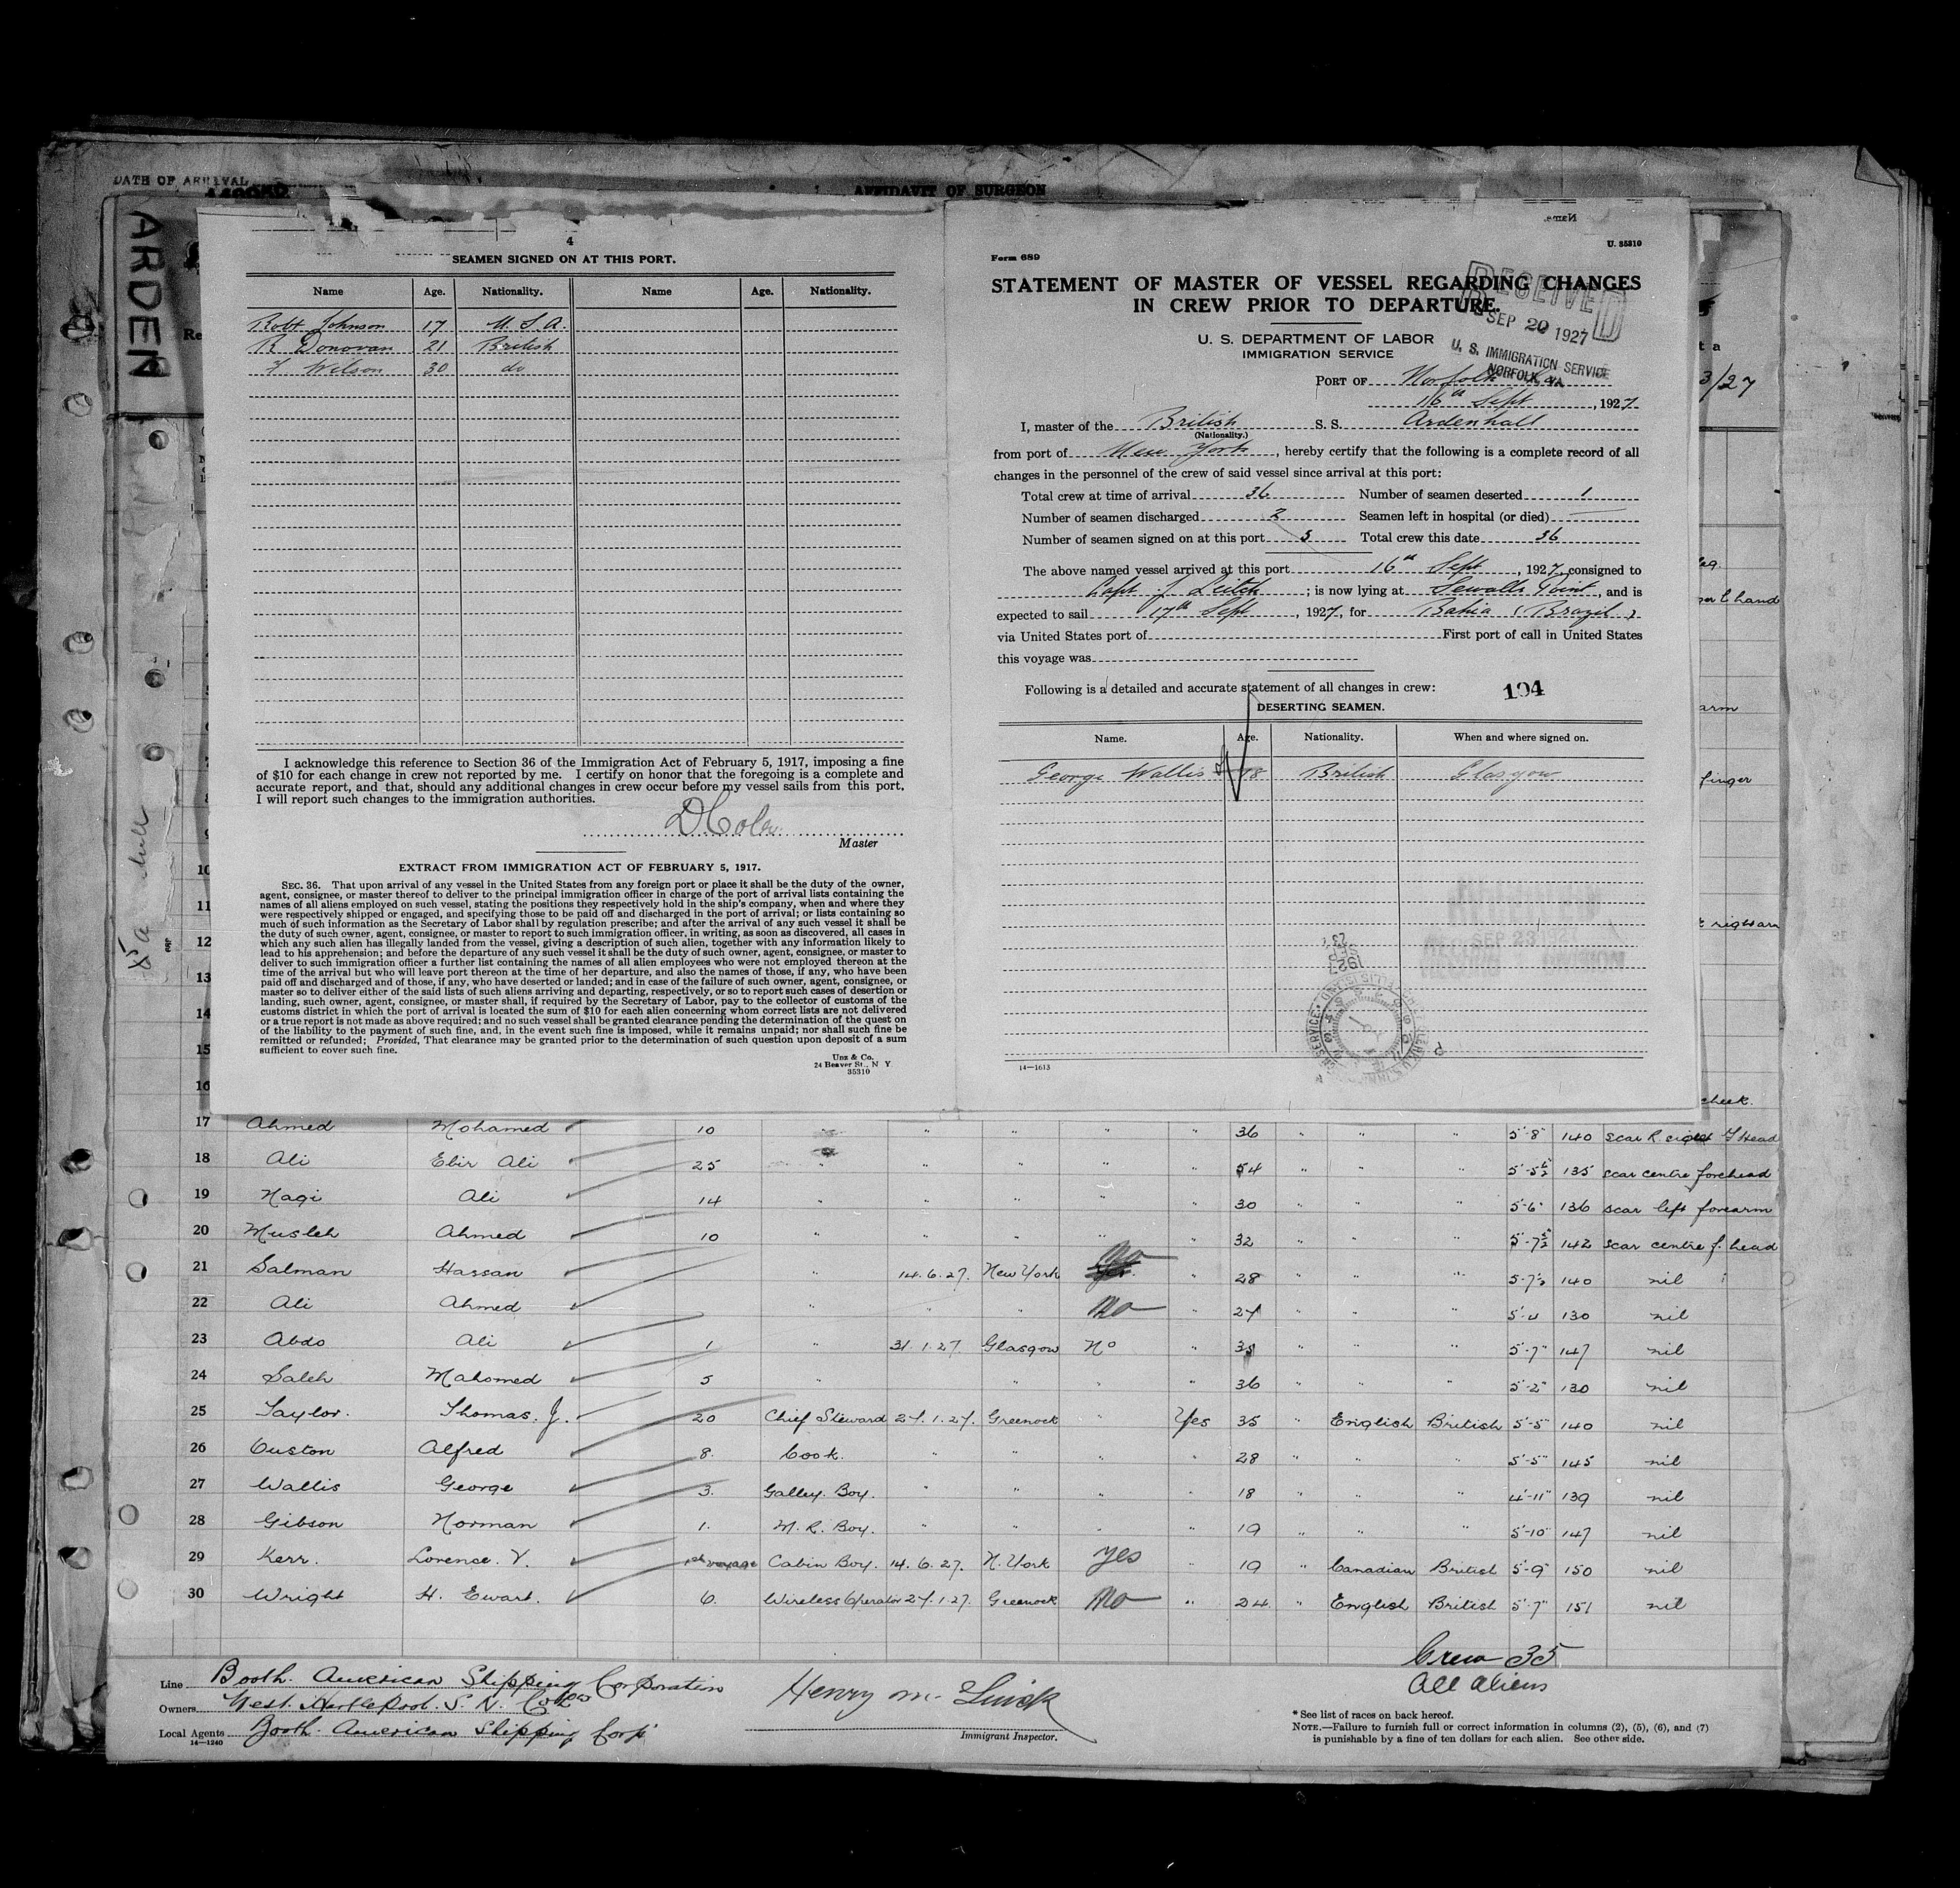 DATE OF ARRIVAL
AFFIDAVIT OF SURGEON
ARDEN
4
SEAMEN SIGNED ON AT THIS PORT.
Name Age. Nationality. Name Age. Nationality.
Robt Johnson 17 U. S. A.
R Donovan 21 British
Wilson 30 do
I acknowledge this reference to Section 36 of the Immigration Act of February 5, 1917, imposing a fine
of $10 for each change in crew not reported by me. I certify on honor that the foregoing is a complete and
accurate report, and that, should any additional changes in crew occur before my vessel sails from this port,
I will report such changes to the immigration authorities.
Master
EXTRACT FROM IMMIGRATION ACT OF FEBRUARY 5, 1917.
SEC. 36. That upon arrival of any vessel in the United States from any foreign port or place it shall be the duty of the owner,
agent, consignee, or master thereof to deliver to the principal immigration officer in charge of the port of arrival lists containing the
names of all aliens employed on such vessel, stating the positions they respectively hold in the ship's company, when and where they
were respectively shipped or engaged, and specifying those to be paid off and discharged in the port of arrival; or lists containing so
much of such information as the Secretary of Labor shall by regulation prescribe; and after the arrival of any such vessel it shall be
the duty of such owner, agent, consignee, or master to report to such immigration officer, in writing, as soon as discovered, all cases in
which any such alien has illegally landed from the vessel, giving a description of such alien, together with any information likely to
lead to his apprehension; and before the departure of any such vessel it shall be the duty of such owner, agent, consignee, or master to
deliver to such immigration officer a further list containing the names of all alien employees who were not employed thereon at the
time of the arrival but who will leave port thereon at the time of her departure, and also the names of those, if any, who have been
paid off and discharged and of those, if any, who have deserted or landed; and in case of the failure of such owner, agent, consignee, or
master so to deliver either of the said lists of such aliens arriving and departing, respectively, or so to report such cases of desertion or
landing, such owner, agent, consignee, or master shall, if required by the Secretary of Labor, pay to the collector of customs of the
customs district in which the port of arrival is located the sum of $10 for each alien concerning whom correct lists are not delivered
or a true report is not made as above required; and no such vessel shall be granted clearance pending the determination of the quest on
of the liability to the payment of such fine, and, in the event such fine is imposed, while it remains unpaid; nor shall such fine be
remitted or refunded; Provided, That clearance may be granted prior to the determination of such question upon deposit of a sum
sufficient to cover such fine.
Unz & Co.
24 Beaver St., N Y
35310
Name.
U. 35310
Form 689
STATEMENT OF MASTER OF VESSEL REGARDING CHANGES
IN CREW PRIOR TO DEPARTURE.
RECEIVED
SEP 20 1927
U. S. IMMIGRATION SERVICE
NORFOLK, VA.
U. S. DEPARTMENT OF LABOR
IMMIGRATION SERVICE
PORT OF Norfolk Va
16th Sept, 1927
I, master of the British S. S. Ardenhall
(Nationality.)
from port of New York, hereby certify that the following is a complete record of all
changes in the personnel of the crew of said vessel since arrival at this port:
Total crew at time of arrival 36 Number of seamen deserted 1
Number of seamen discharged 2 Seamen left in hospital (or died) —
Number of seamen signed on at this port 3 Total crew this date 36
The above named vessel arrived at this port 16th Sept, 1927, consigned to
Capt J Leitch; is now lying at Sewalls Point, and is
expected to sail 17th Sept, 1927, for Bahia (Brazil)
via United States port of First port of call in United States
this voyage was
Following is a detailed and accurate statement of all changes in crew: 194
DESERTING SEAMEN.
Name. Age. Nationality. When and where signed on.
George Wallis 18 British Glasgow
14—1613
3/27
hand
arm
finger
right arm
cheek.
10
11
12
13
14
15
16
17 Ahmed Mohamed 10 " " " " " 36 " " " 5'-8" 140 scar R. Head
18 Ali Ebir Ali 25 " " " " " 54 " " " 5'-5½ 135 scar centre forehead
19 Nagi Ali 14 " " " " " 30 " " " 5'-6" 136 scar left forearm
20 Musleh Ahmed 10 " " " " " 32 " " " 5'-7½ 142 scar centre f. head
21 Salman Hassan " 14.6.27. New York no " 28 " " " 5-7½ 140 nil
22 Ali Ahmed " " " No " 27 " " " 5'-4 130 nil
23 Abdo Ali 1 " 31.1.27. Glasgow No " " " " 5'-7" 147 nil
24 Saleh Mahomed 5 " " " " " 36 " " " 5'-2" 130 nil
25 Taylor. Thomas. J. 20 Chief Steward 27.1.27. Greenock " Yes 35 " English British 5'-5" 140 nil
26 Ouston Alfred 8. Cook. " " " " 28 " " " 5'-5" 145 nil
27 Wallis George 3. Galley Boy. " " " " 18 " " " 4'-11" 139 nil
28 Gibson Norman 1. M. R. Boy. " " " " 19 " " " 5'-10" 147 nil
29 Kerr. Lorence. V. 1st voyage Cabin Boy. 14.6.27. N. York Yes 19 " Canadian British 5'-9" 150 nil
30 Wright H. Ewart. 6. Wireless Operator 27.1.27. Greenock No " 24. " English British 5'-7" 151 nil
Crew 35
All aliens
Line Booth American Shipping Corporation
Owners West Hartlepool. S. N. Co Ltd
Local Agents Booth American Shipping Corp
14—1240
Immigrant Inspector.
* See list of races on back hereof.
NOTE.—Failure to furnish full or correct information in columns (2), (5), (6), and (7)
is punishable by a fine of ten dollars for each alien. See other side.